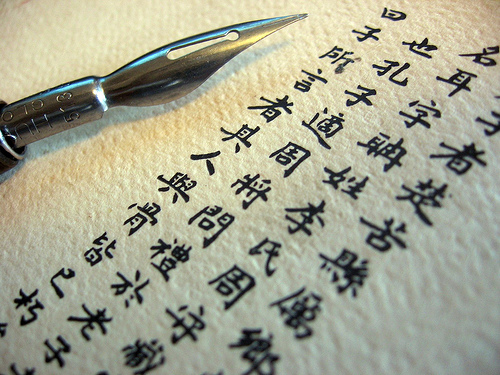 子者楚苦縣厲鄉
名耳字聃姓李氏周守藏
也孔子適周將問禮於老子
曰子所言者其人與骨皆已朽